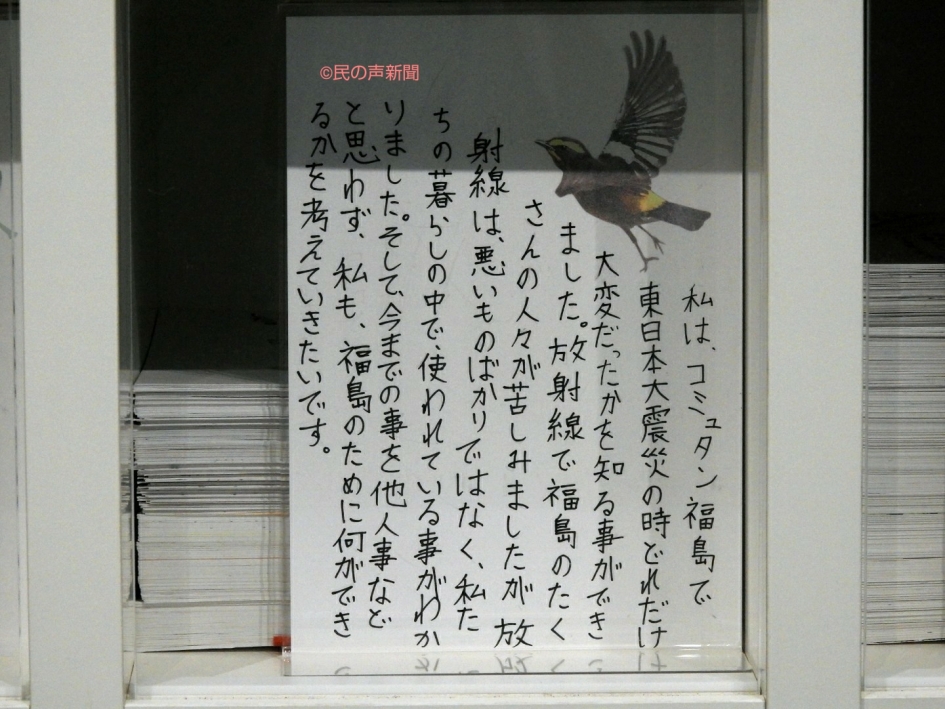 ©民の声新聞
私は、コミュタン福島で
東日本大震災の時どれだけ
大変だったかを知る事ができ
ました。放射線で福島のたく
さんの人々が苦しみましたが放
射線は、悪いものばかりではなく、私た
ちの暮らしの中で、使われている事がわか
りました。そして、今までの事を他人事など
と思わず、私も、福島のために何ができ
るかを考えていきたいです。